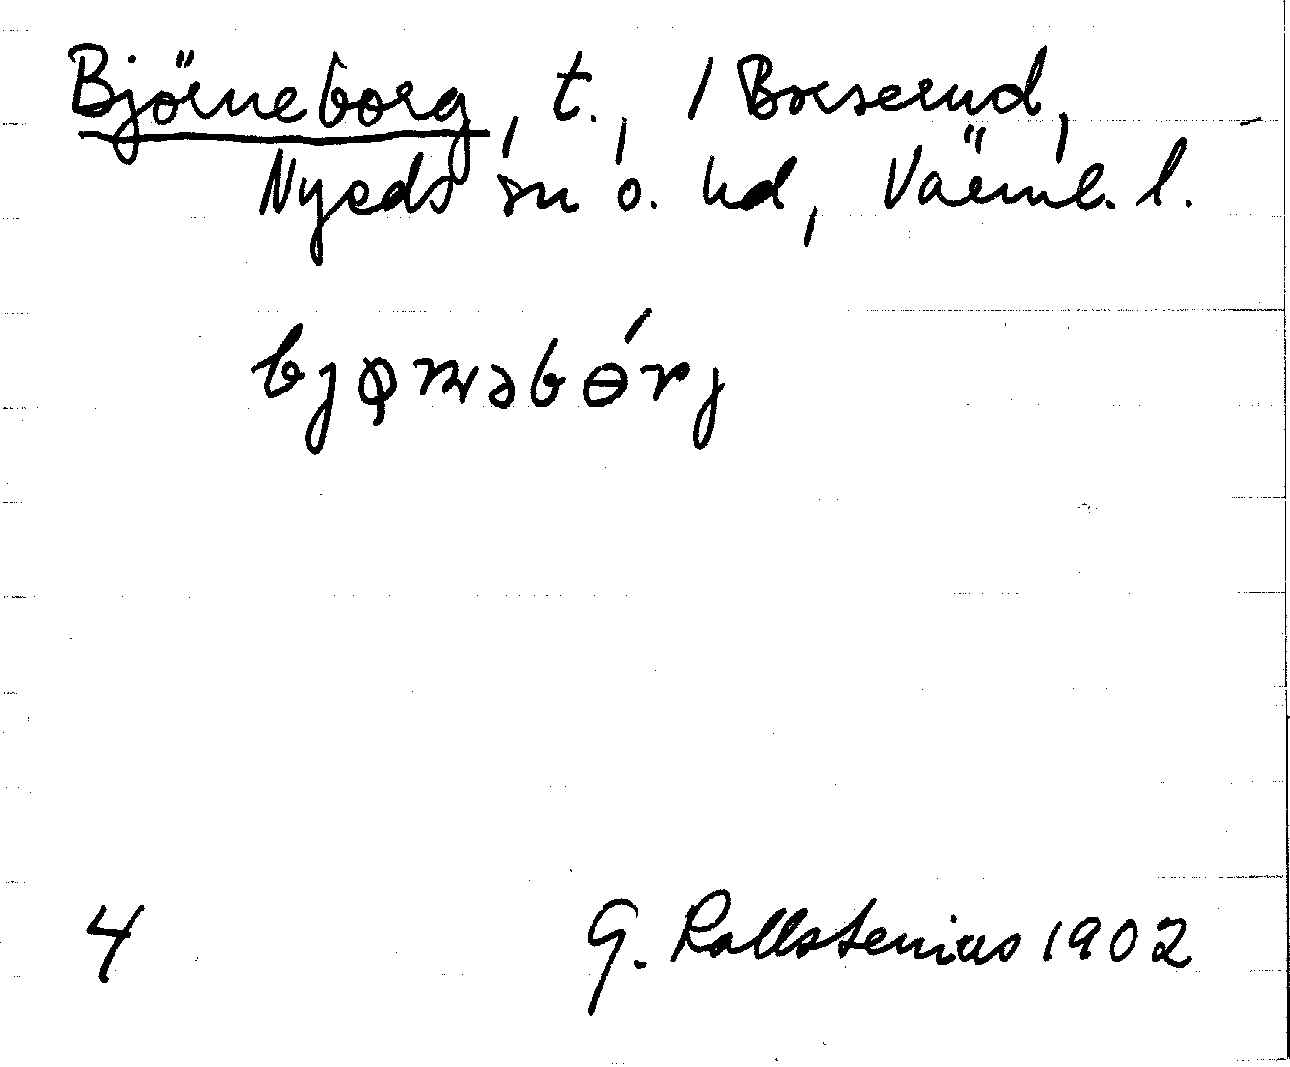 Björneborg, t., / Borserud,
Nyeds sn o. hd, Värml. l.
bjɵrnəbɵ́rj
4 G. Kallstenius 1902